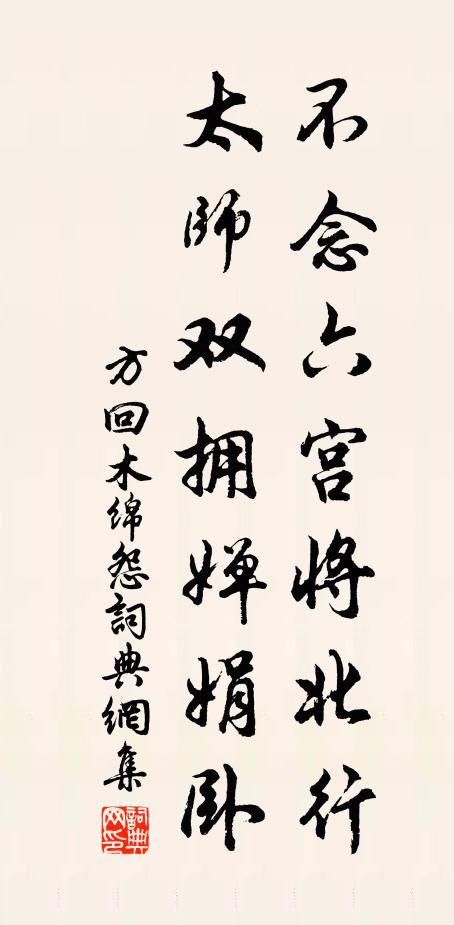 不念六宫将北行
太师双拥婵娟卧
方回木绵怨詞典網集
詞典網印